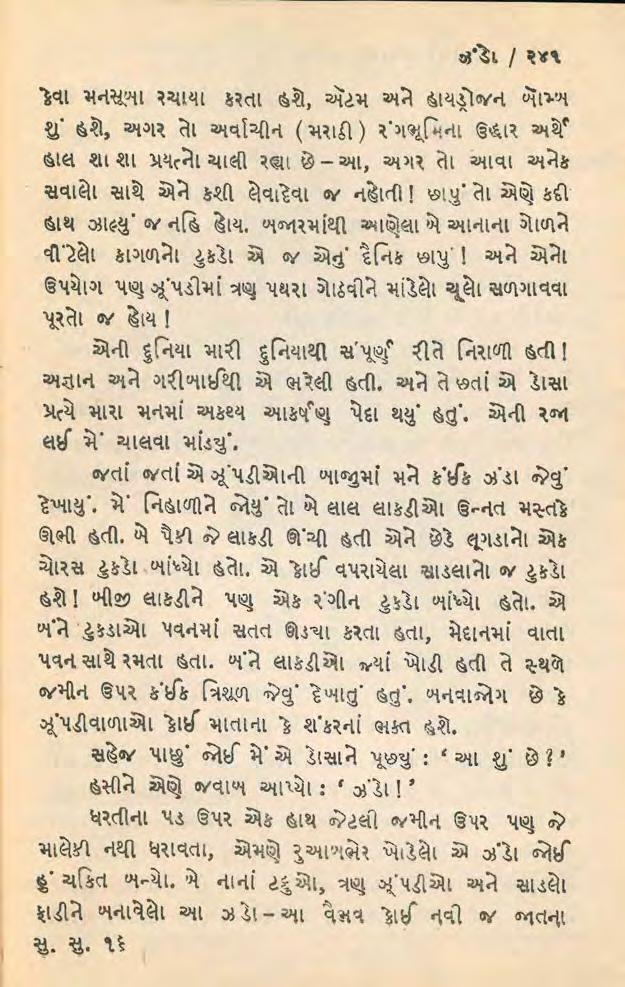 ઝંડો / ૨૪૧
કેવા મનસૂબા રચાયા કરતા હશે, ઍટમ અને હાયડ્રોજન બૉમ્બ
શું હશે, અગર તો અર્વાચીન (મરાઠી) રંગભૂમિના ઉદ્ધાર અર્થે
હાલ શા શા પ્રયત્નો ચાલી રહ્યા છે – આ, અગર તો આવા અનેક
સવાલો સાથે એને કશી લેવાદેવા જ નહોતી! છાપું તો એણે કદી
હાથ ઝાલ્યું જ નહિ હોય. બજારમાંથી આણેલા બે આનાના ગોળને
વીંટેલો કાગળનો ટુકડો એ જ એનું દૈનિક છાપું! અને એનો
ઉપયોગ પણ ઝૂંપડીમાં ત્રણ પથરા ગોઠવીને માંડેલો ચૂલો સળગાવવા
પૂરતો જ હોય!
એની દુનિયા મારી દુનિયાથી સંપૂર્ણ રીતે નિરાળી હતી!
અજ્ઞાન અને ગરીબાઈથી એ ભરેલી હતી. અને તે છતાં એ ડોસા
પ્રત્યે મારા મનમાં અકથ્ય આકર્ષણ પેદા થયું હતું. એની રજા
લઈ મેં ચાલવા માંડ્યું.
જતાં જતાં એ ઝૂંપડીઓની બાજુમાં મને કંઈક ઝંડા જેવું
દેખાયું. મેં નિહાળીને જોયું તો બે લાલ લાકડીઓ ઉન્નત મસ્તકે
ઊભી હતી. બે પૈકી જે લાકડી ઊંચી હતી એને છેડે લૂગડાનો એક
ચોરસ ટુકડો બાંધ્યો હતો. એ કોઈ વપરાયેલા સાડલાનો જ ટુકડો
હશે! બીજી લાકડીને પણ એક રંગીન ટુકડો બાંધ્યો હતો. એ
બંને ટુકડાઓ પવનમાં સતત ઊડ્યા કરતા હતા, મેદાનમાં વાતા
પવન સાથે રમતા હતા. બંને લાકડીઓ જ્યાં ખોડી હતી તે સ્થળે
જમીન ઉપર કંઈક ત્રિશૂળ જેવું દેખાતું હતું. બનવાજોગ છે કે
ઝૂંપડીવાળાઓ કોઈ માતાના કે શંકરનાં ભક્ત હશે.
સહેજ પાછું જોઈ મેં એ ડોસાને પૂછ્યું : ‘ આ શું છે?’
હસીને એણે જવાબ આપ્યો : ‘ ઝંડો!’
ધરતીના પડ ઉપર એક હાથ જેટલી જમીન ઉપર પણ જે
માલેકી નથી ધરાવતા, એમણે રુઆબભેર ખોડેલો એ ઝંડો જોઈ
હું ચકિત બન્યો. બે નાનાં ટટ્ટુઓ, ત્રણ ઝૂંપડીઓ અને સાડલો
ફાડીને બનાવેલો આ ઝંડો – આ વૈભવ કોઈ નવી જ જાતના
સુ. સુ. ૧૬